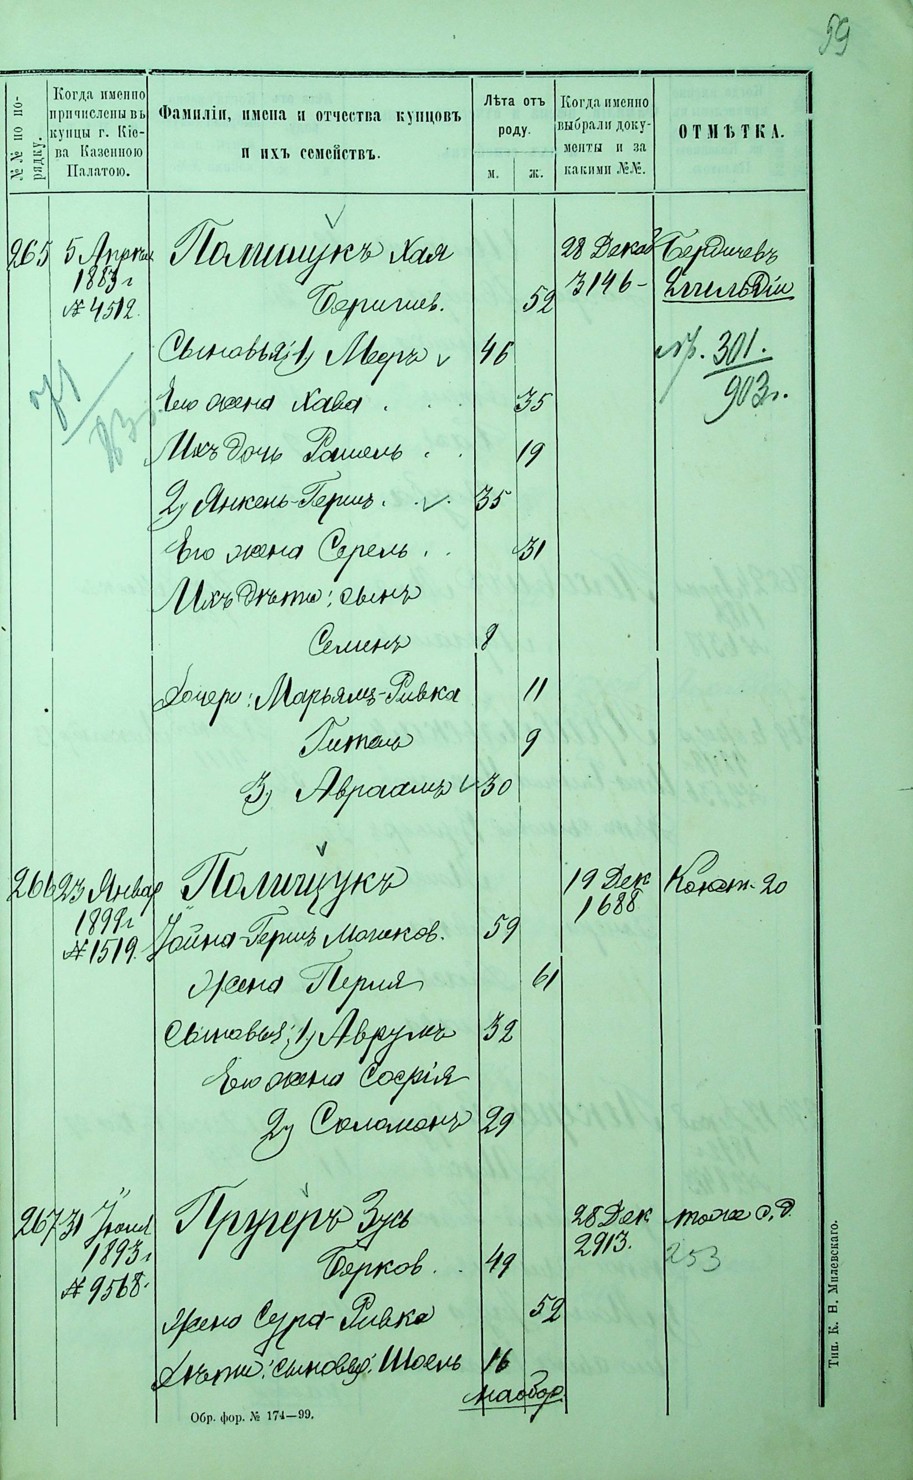 59
№№ по по-
рядку.
Когда именно
причислены въ
купцы г. Кіе-
ва Казенною
Палатою.
Фамиліи, имена и отчества купцовъ
и ихъ семействъ.
Лѣта отъ
роду.
м.
ж.
Когда именно
выбрали доку-
менты и за
какими №№.
ОТМѢТКА.
265 5 Апрѣля Полищукъ Хая 28 Декаб Бердичевъ
1883 г Беришев. 52 3146
№ 4512.
Сыновья: 1) Мееръ 46 301.
903 г.
Его жена Хава . 35
Ихъ дочь Рашель . . 19
2) Янкель-Гершъ . . 35
Его жена Серель . . 31
Ихъ дѣти: сынъ
Семенъ 8
Дочери: Марьямъ-Ривка 11
Гитель 9
3) Авраамъ 30
266 23 Январ Полищукъ 19 Дек Конст. 20
1899 г 1688
№ 1519. Іойна-Гершъ Мошков. 59
Жена Перля 61
Сыновья: 1) Аврумъ 32
Его жена Софія
2) Соломонъ 29
267 31 Іюля Пругеръ Зусь 28 Дек тоже с. д.
1893 г Берков. . 49 2913. 253
№ 9568.
Жена Сура-Ривка 52
Дѣти: сыновья: Шоель 16
наобор.
Обр. фор. № 174—99.
Тип. К. Н. Милевскаго.